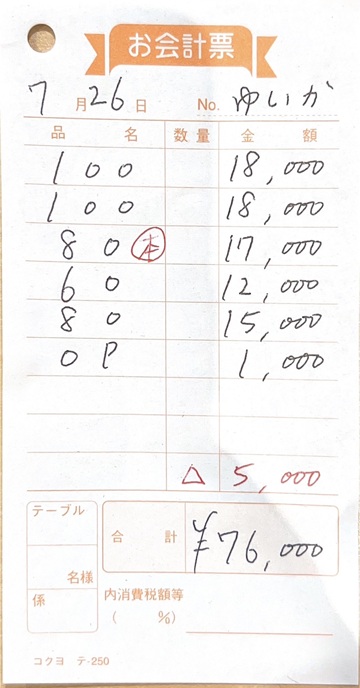 お会計票
7月26日 No. ゆいか
品名 数量 金額
100 18,000
100 18,000
80 本 17,000
60 12,000
80 15,000
OP 1,000
△ 5,000
テーブル
名様
係
合計 ¥76,000
内消費税額等
( %)
コクヨ テ-250